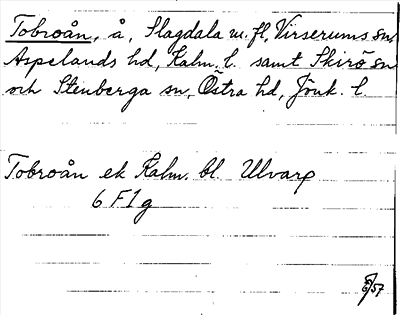 Tobroån, å, Slagdala m. fl, Virserums sn,
Aspelands hd, Kalm. l. samt Skirö sn
och Stenberga sn, Östra hd, Jönk. l.
Tobroån ek Kalm. bl. Ulvarp
6 F1 g
/57